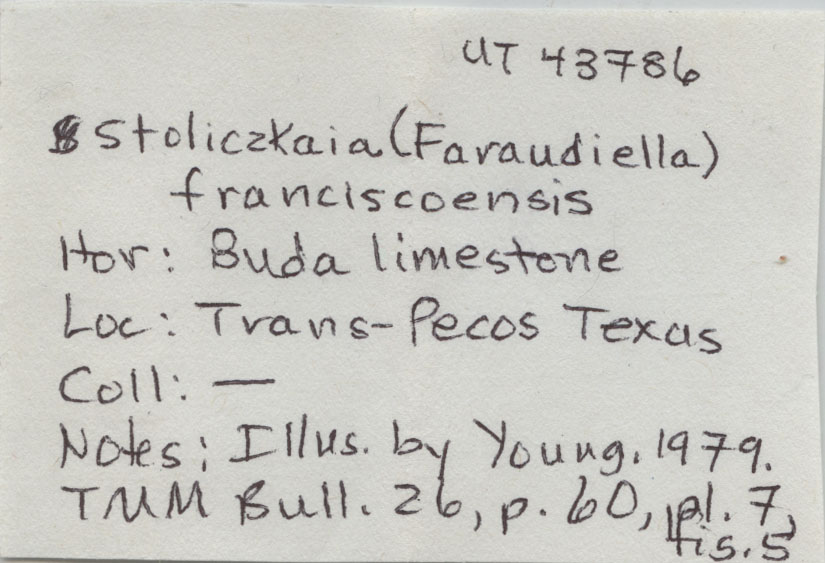 UT 43786
Stoliczkaia (Faraudiella)
franciscoensis
Hor: Buda limestone
Loc: Trans-Pecos Texas
Coll: —
Notes: Illus. by Young. 1979.
TMM Bull. 26, p. 60, pl. 7,
fig. 5